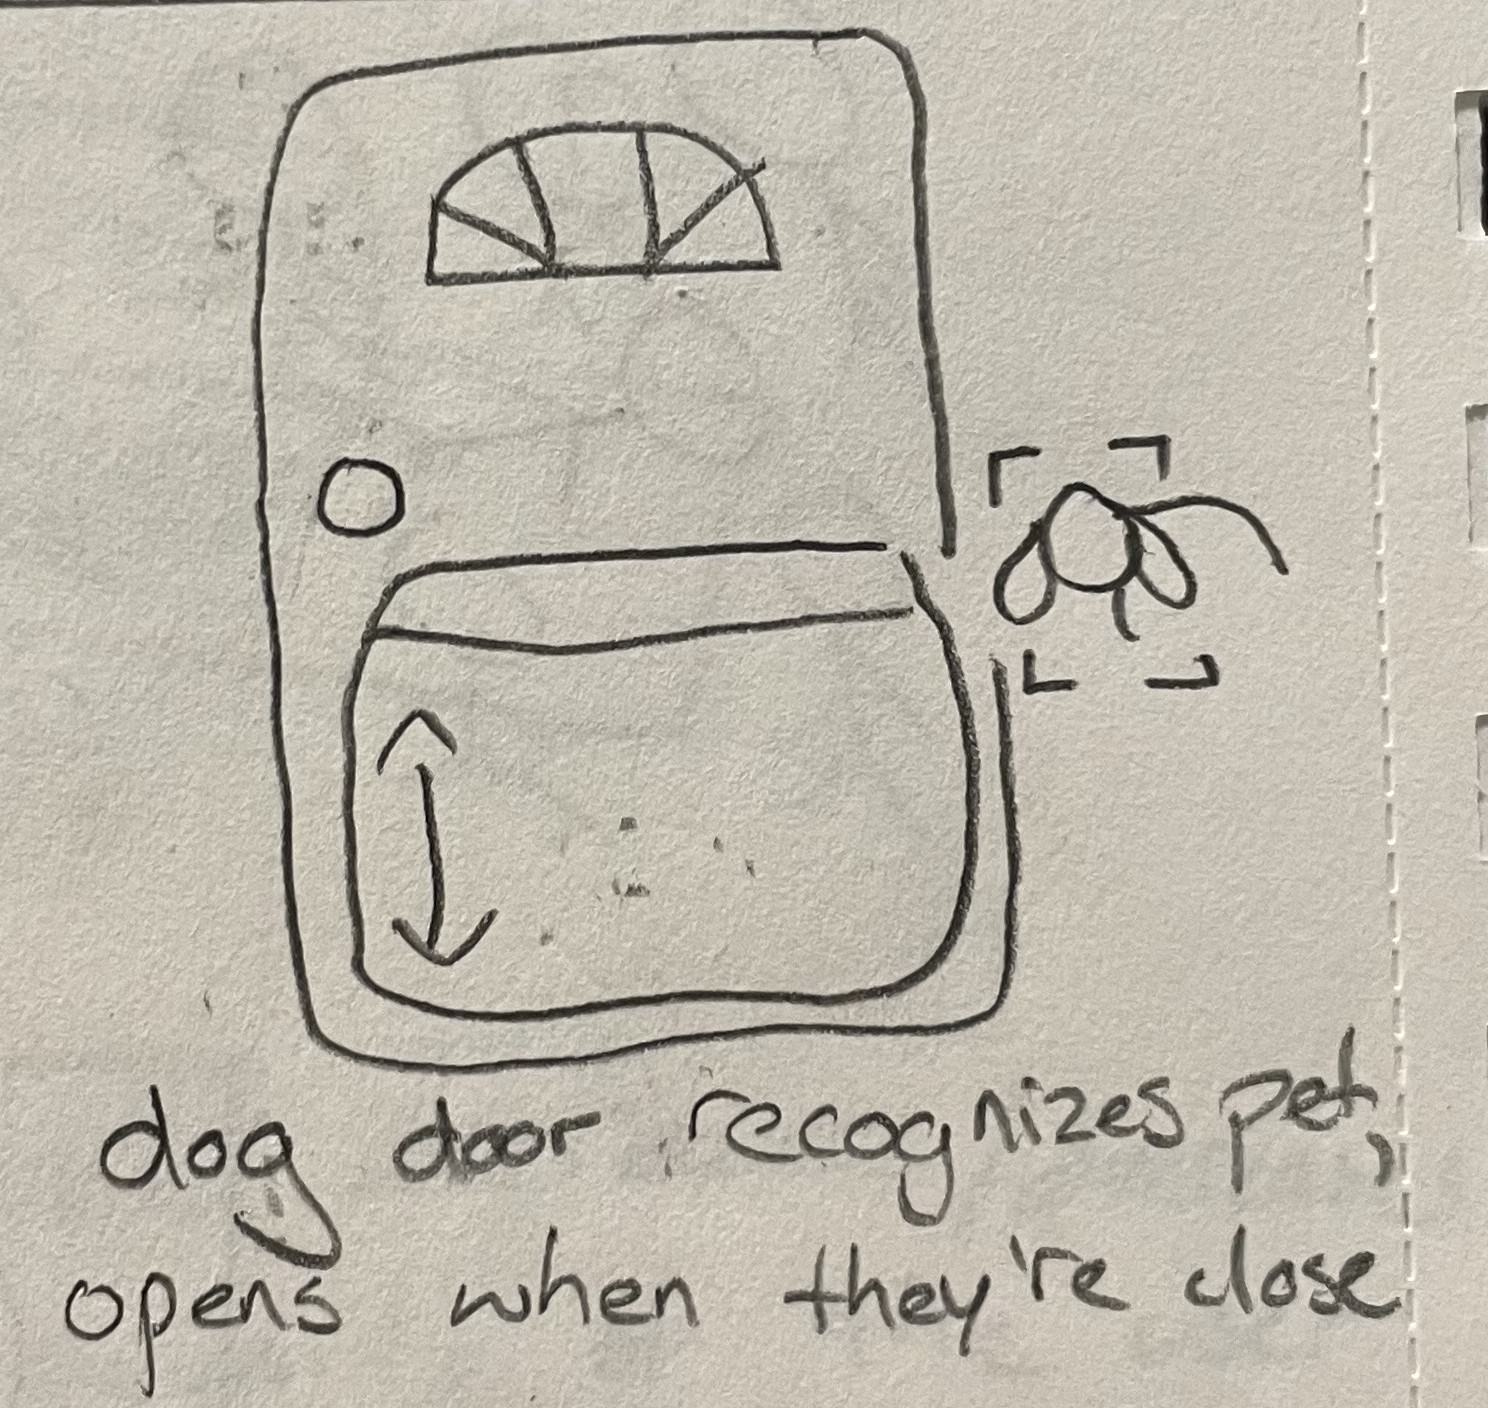 dog door recognizes pet,
opens when they're close